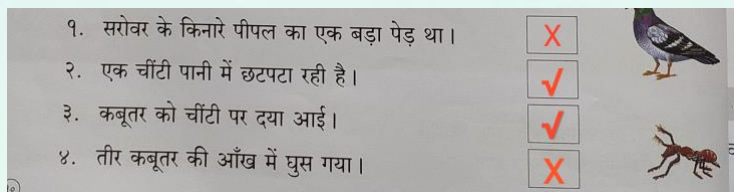 १. सरोवर के किनारे पीपल का एक बड़ा पेड़ था। X
२. एक चींटी पानी में छटपटा रही है। √
३. कबूतर को चींटी पर दया आई। √
४. तीर कबूतर की आँख में घुस गया। X